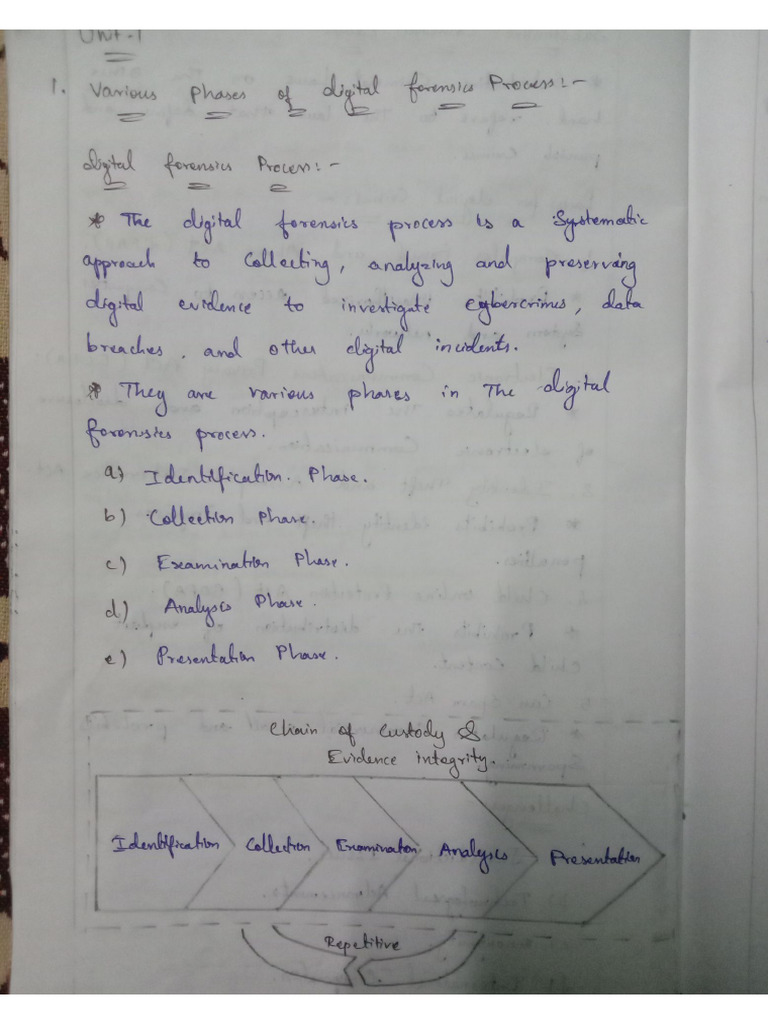 Unit-1
1. Various Phases of digital forensics Process:-
digital forensics Process:-
* The digital forensics process is a Systematic
approach to Collecting, analyzing and preserving
digital evidence to investigate cybercrimes, data
breaches, and other digital incidents.
* They are various phases in The digital
forensics process.
a) Identification Phase.
b) Collection Phase.
c) Examination Phase.
d) Analysis Phase.
e) Presentation Phase.
Chain of Custody &
Evidence integrity.
Identification Collection Examination Analysis Presentation
Repetitive